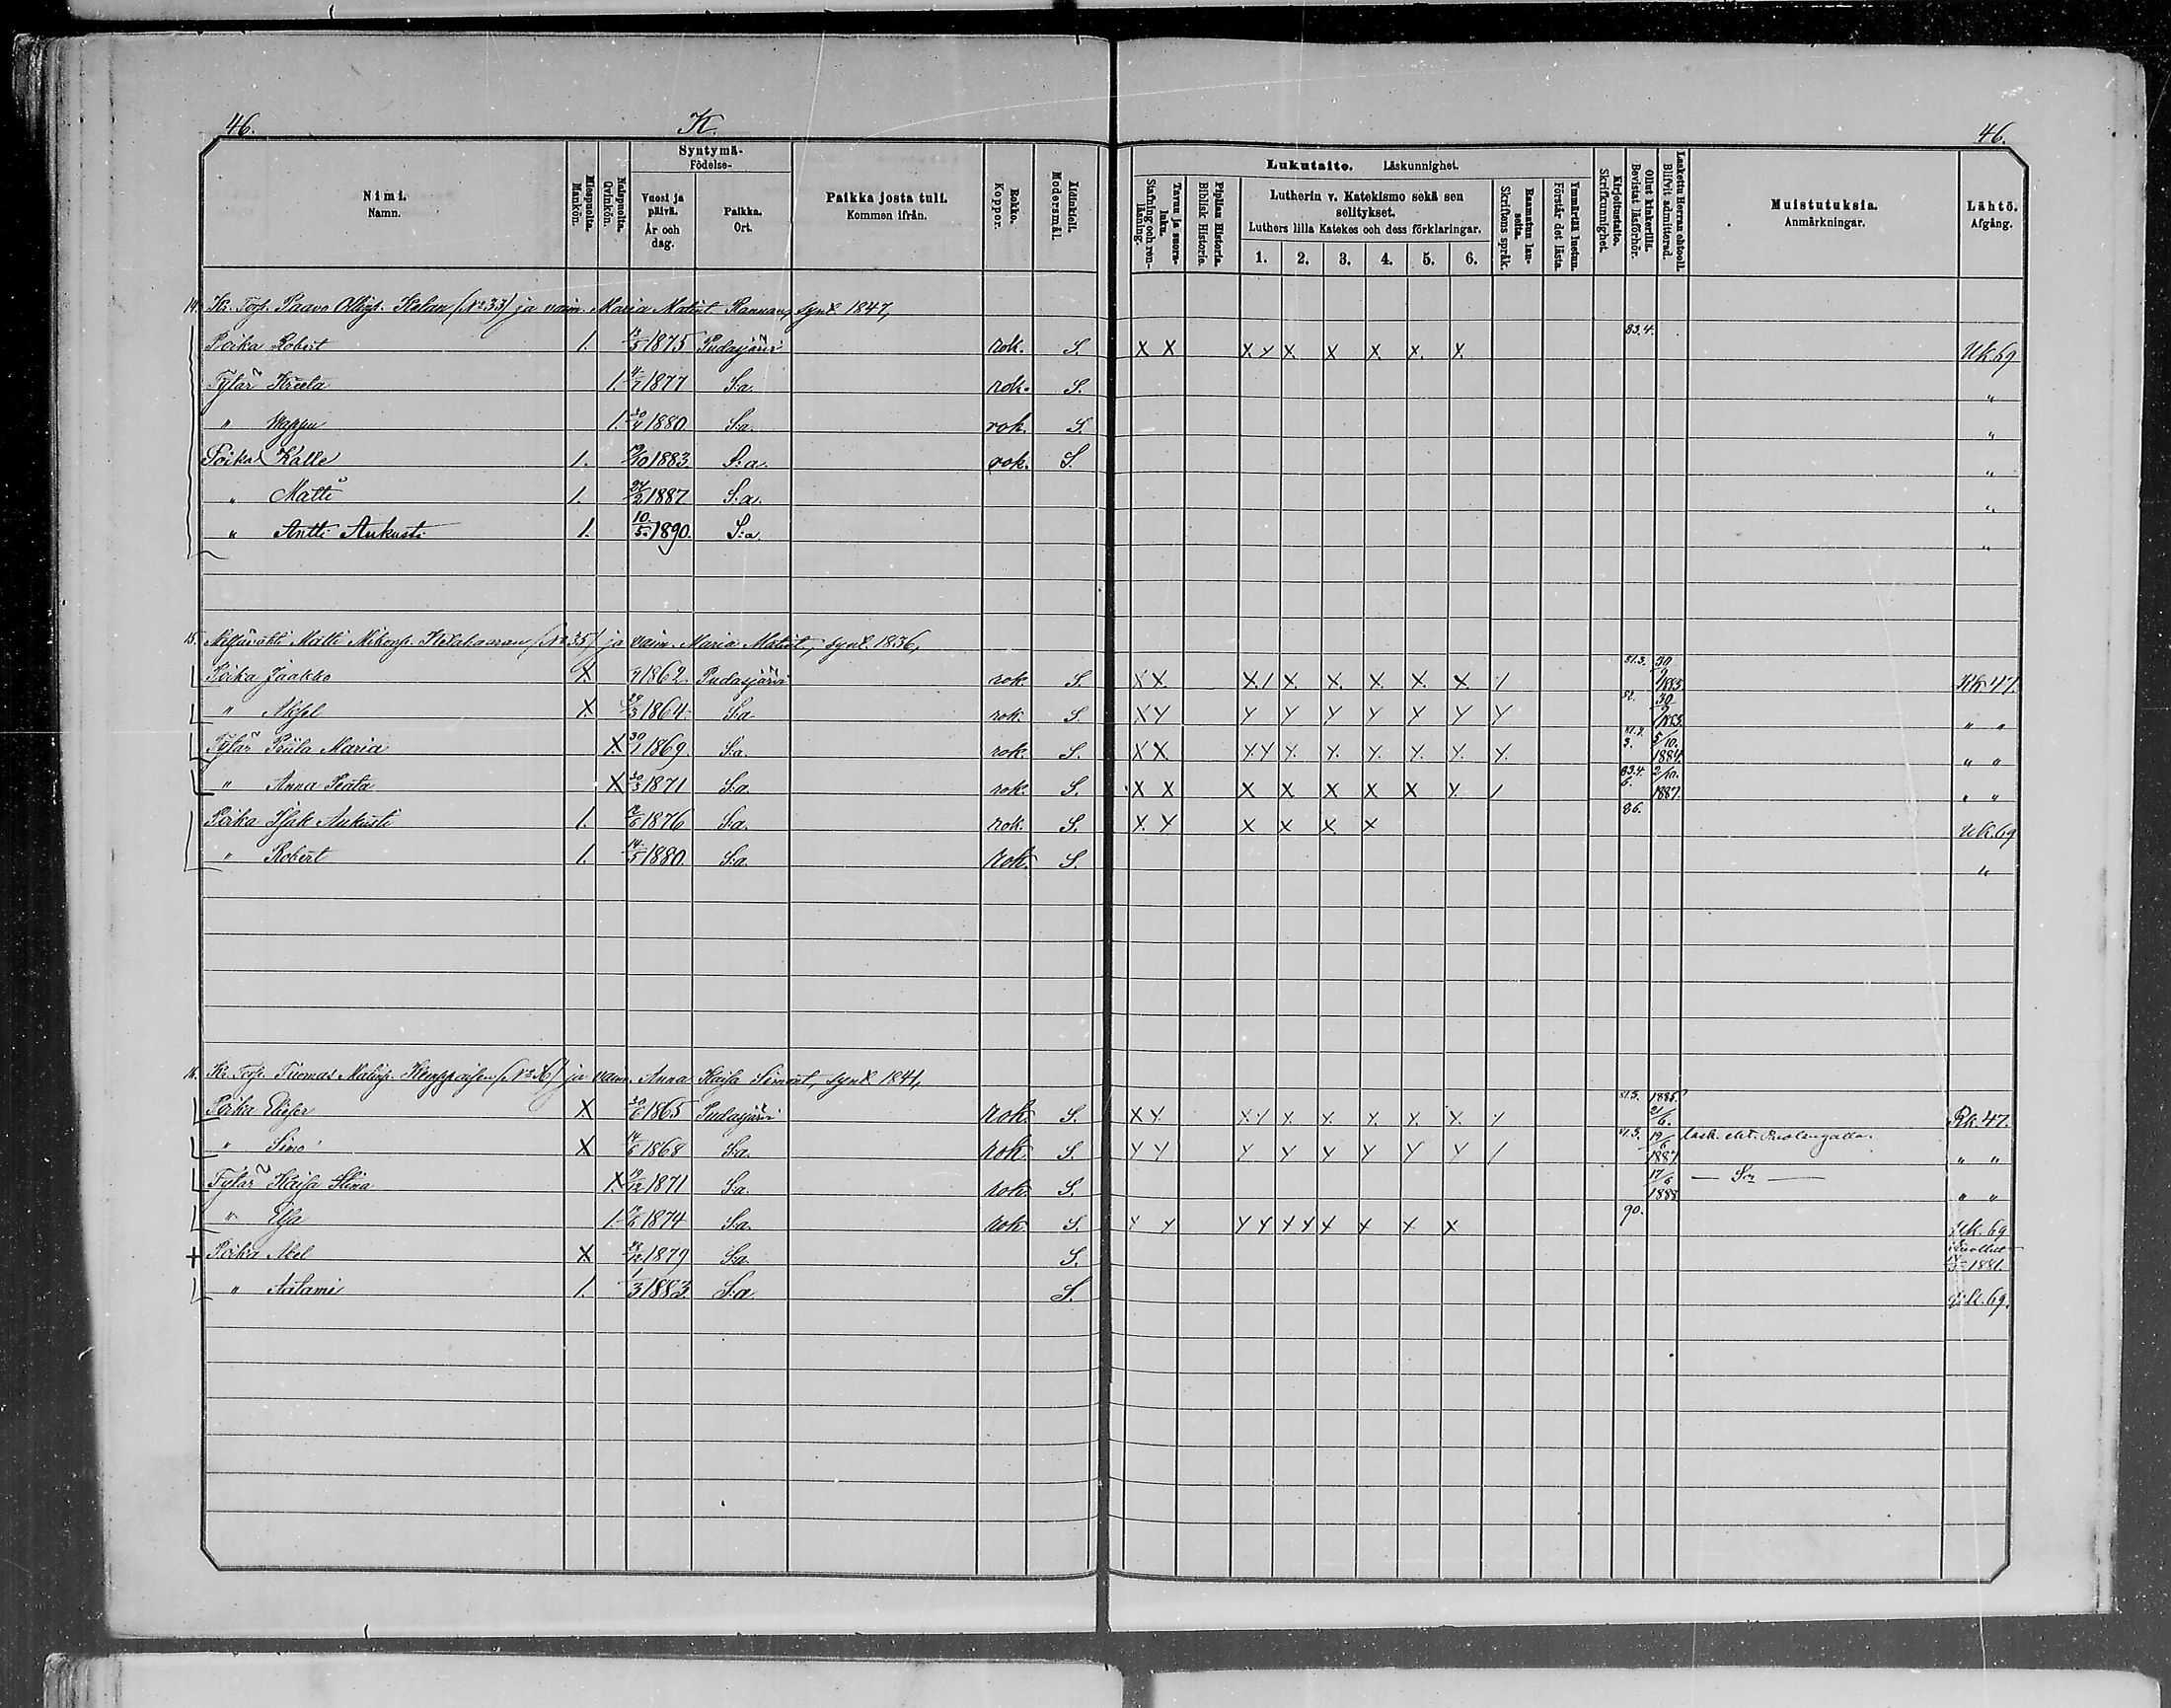 46. K. 46.
Nimi. Namn.
Miespuolia. Mankön.
Naispuolia. Qvinkön.
Syntymä- Födelse-
Vuosi ja päivä. År och dag.
Paikka. Ort.
Paikka josta tuli. Kommen ifrån.
Rokko. Koppor.
Äidinkieli. Modersmål.
Lukutaito. Läskunnighet.
Tavuu ja suora- luku. Stafning och ren- läsning.
Piplian Historia. Biblisk Historie.
Lutherin v. Katekismo sekä sen selitykset.
Luthers lilla Katekes och dess förklaringar.
1. 2. 3. 4. 5. 6.
Raamatun lau- seita. Skriftens språk.
Ymmärtää luetun. Förstår det lästa.
Kirjoitustaito. Skrifkunnighet.
Ollut kinkerillä. Bevistat läsförhör.
Laskettu Herran ehtooll. Blifvit admitterad.
Muistutuksia. Anmärkningar.
Lähtö. Afgång.
14. Kr. Torp. Paavo Ollinp. Kelan (No 33) ja vaim. Maria Matint. Rannan, synt. 1847,
Poika Robert 1. 1875 Pudasjärvi rok. S. X X X Y X X X X X 83.4. Uk 69
Tytär Kreeta 1. 1877 S:a. rok. S. "
" Wappu 1. 1880 S:a. rok. S. "
Poika Kalle 1. 1883 S:a. rok. S. "
" Matti 1. 24/2 1887 S:a. "
" Antti Aukusti 1. 10/5 1890. S:a. "
15. Matti Mikonp. (No 35) ja vaim. Maria Matint., synt. 1836,
Poika Jaakko X 1862. Pudasjärvi rok. S. X X X / X X X X X / 81.3. 30/9 1883 Rk 47.
" Aksel X 1864 S:a rok. S. X Y Y Y Y Y Y Y Y 82. 30/9 1883 " "
Tytär Priita Maria X 30/1 1869. S:a. rok. S. X X Y Y Y Y Y Y Y Y 3. 5/10. 1884. " "
" Anna Beata X 30/3 1871 S:a rok. S. X X X X X X X Y / 83.4. 6. 2/10. 1887. " "
Poika Isak Aukusti 1. 1876 S:a. rok. S. X Y X X X X 86. Uk. 69
" Robert 1. 14/5 1880. S:a rok. S. "
16. Kr. Torp. Tuomas Matinp. Kemppaisen (No 36) ja vaim. Anna Kaisa Simont., synt. 1841,
Poika Elieser X 1865 Pudasjärvi rok. S. X Y X Y Y Y Y Y X Y 81.3. 1885. 21/6. Rk. 47.
" Simo X 14/6 1868 S:a. rok. S. Y Y Y Y Y Y Y Y / 81.3. 19/6 1887 lask. eht. Puolangalla. " "
Tytär Kaisa Stina X 19/12 1871 S:a. rok. S. 17/6 1888 — S:n — " "
" Elsa 1. 1874 S:a. rok. S. Y Y Y Y X Y X X X X 90. Uk. 69
+ Poika Abel X 1879 S:a. S. Kuollut 1881.
" Aatami 1. 1/3 1883. S:a. S. Uk. 69.